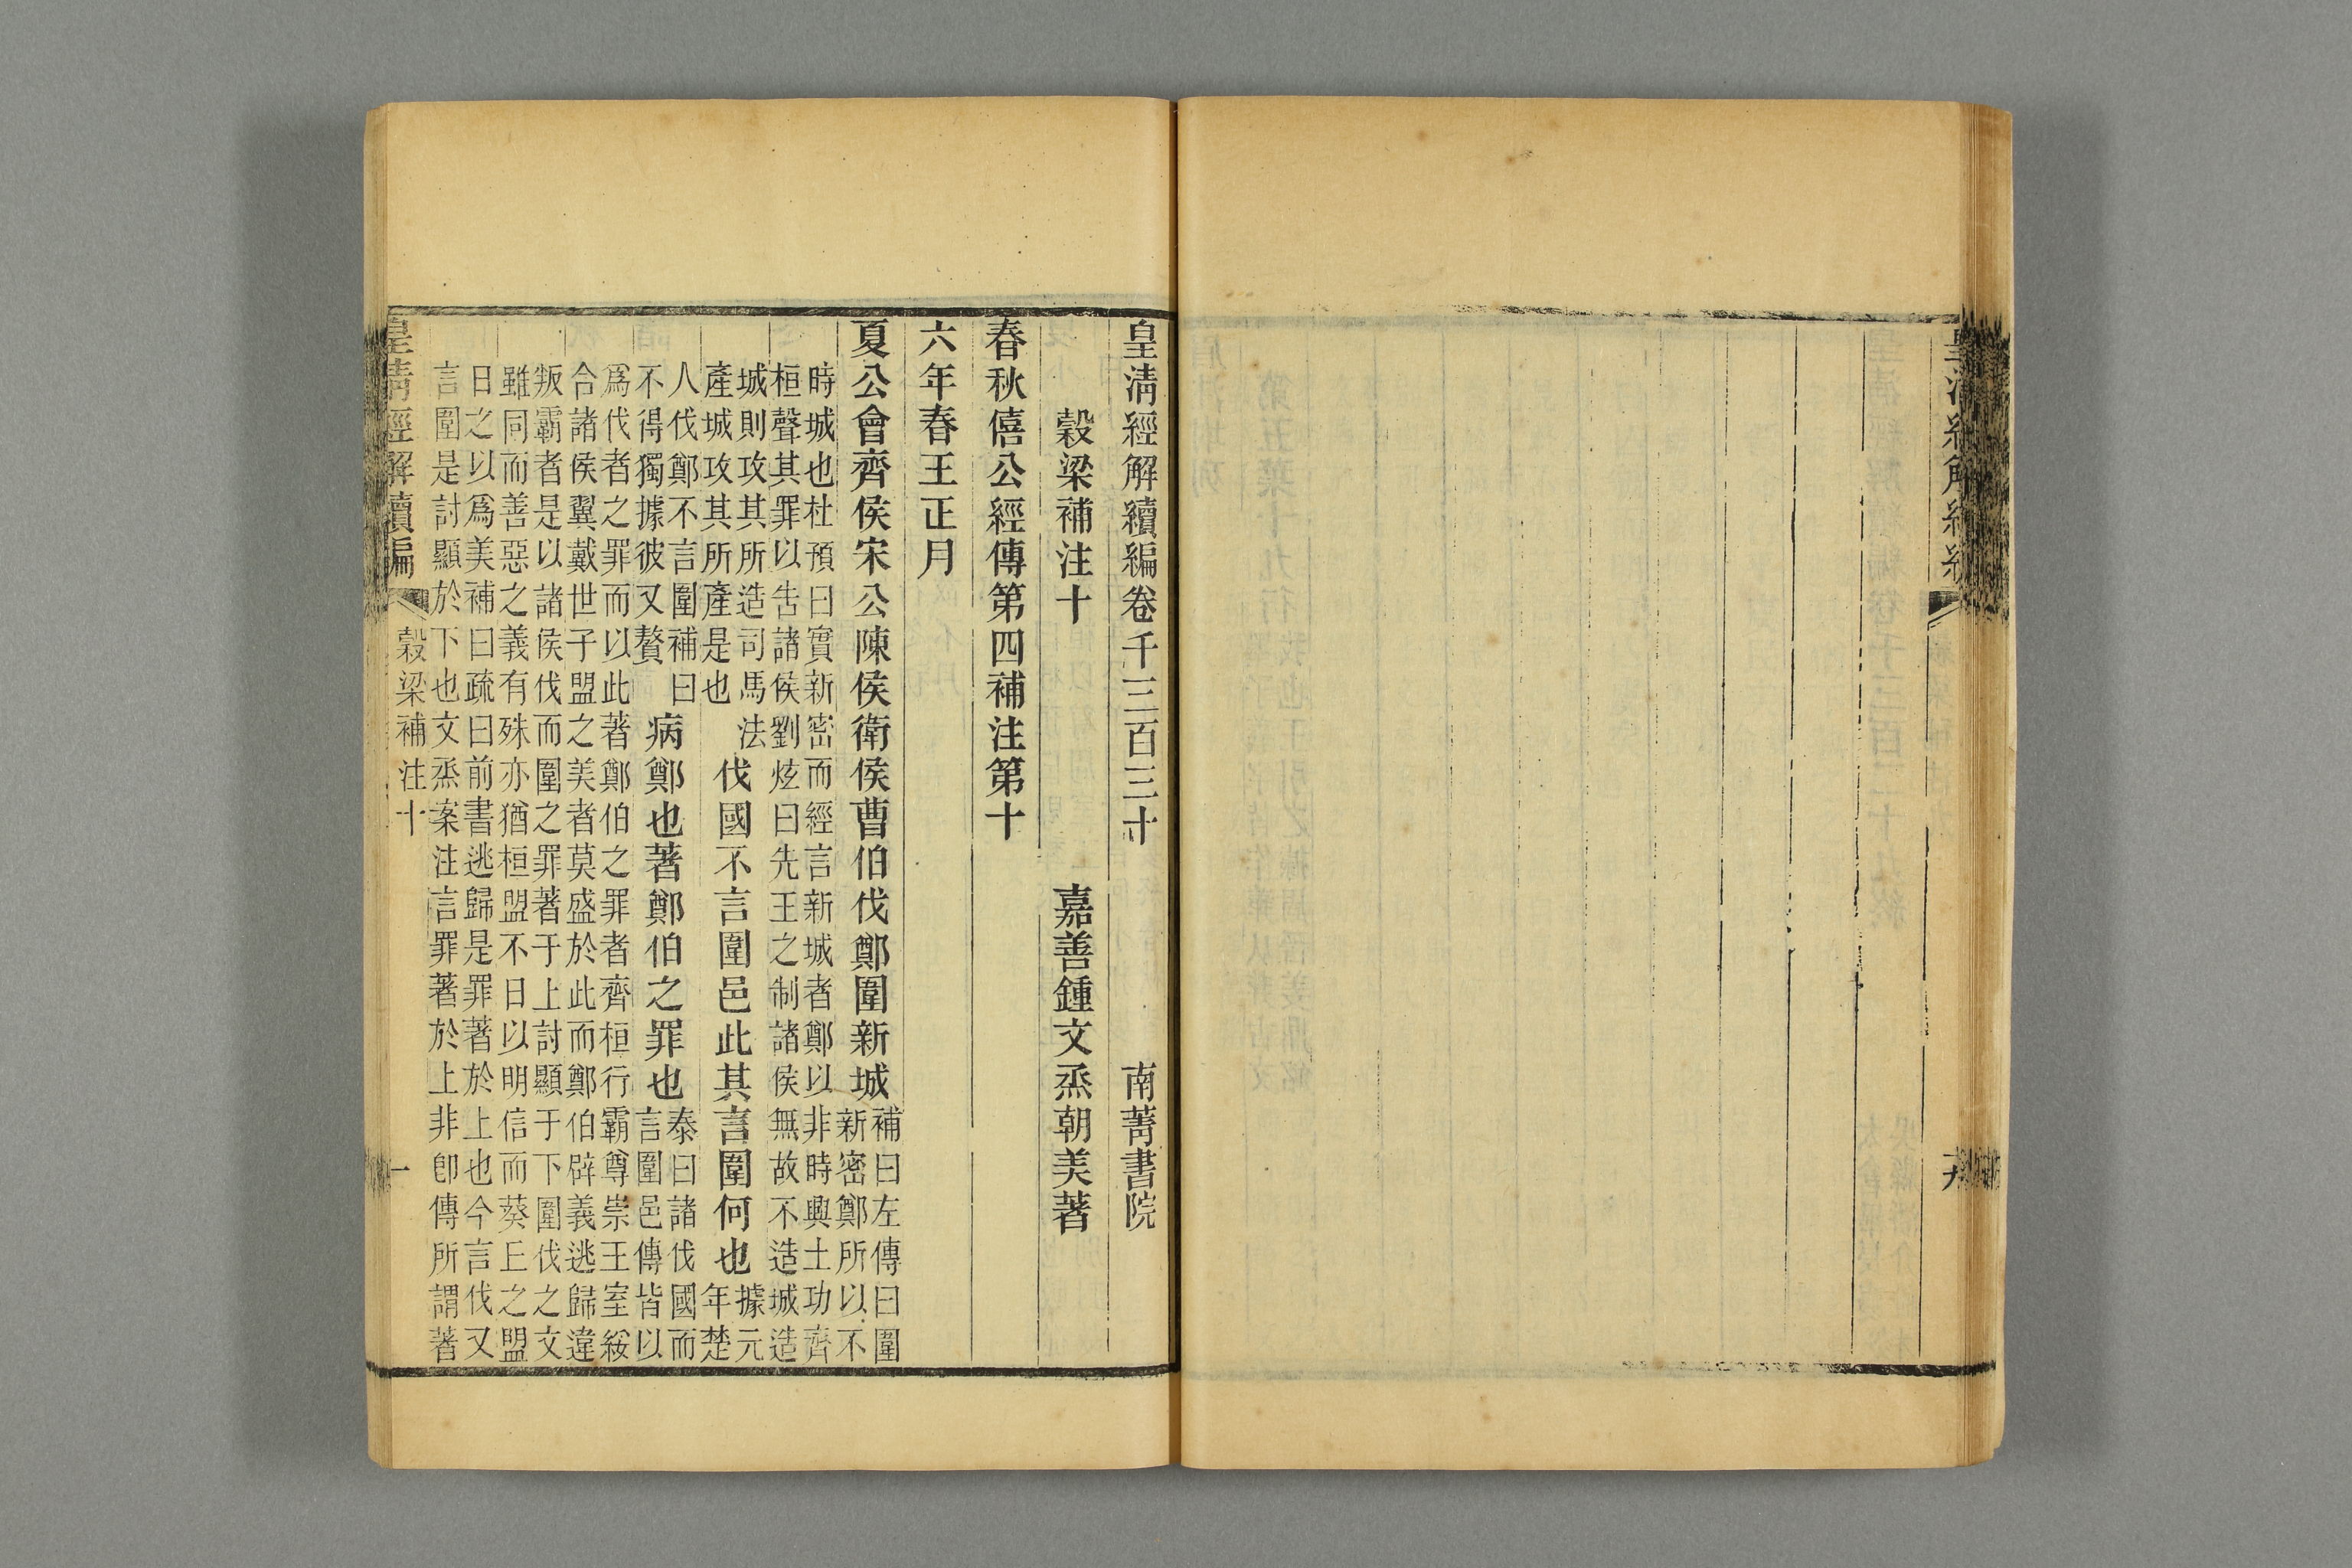 皇淸經解續編卷千三百三十　南菁書院
穀梁補注十　嘉善鍾文烝朝美著
春秋僖公經傳第四補注第十
六年春王正月
夏公會齊侯宋公陳侯衛侯曹伯伐鄭圍新城
補曰左傳曰圍
新密鄭所以不
時城也杜預曰實新密而經言新城者鄭以非時興土功齊
桓聲其罪以告諸侯劉炫曰先王之制諸侯無故不造城造
城則攻其所造司馬法
產城攻其所產是也
伐國不言圍邑此其言圍何也
據元
年楚
人伐鄭不言圍補曰
不得獨據彼又贅
病鄭也著鄭伯之罪也
泰曰諸伐國而
言圍邑傳皆以
爲伐者之罪而以此著鄭伯之罪者齊桓行霸尊崇王室綏
合諸侯翼戴世子盟之美者莫盛於此而鄭伯辟義逃歸違
叛霸者是以諸侯伐而圍之罪著于上討顯于下圍伐之文
雖同而善惡之義有殊亦猶桓盟不日以明信而葵丘之盟
日之以爲美補曰疏曰前書逃歸是罪著於上也今言伐又
言圍是討顯於下也文烝案注言罪著於上非卽傳所謂著
皇淸經解續編　穀梁補注十　一